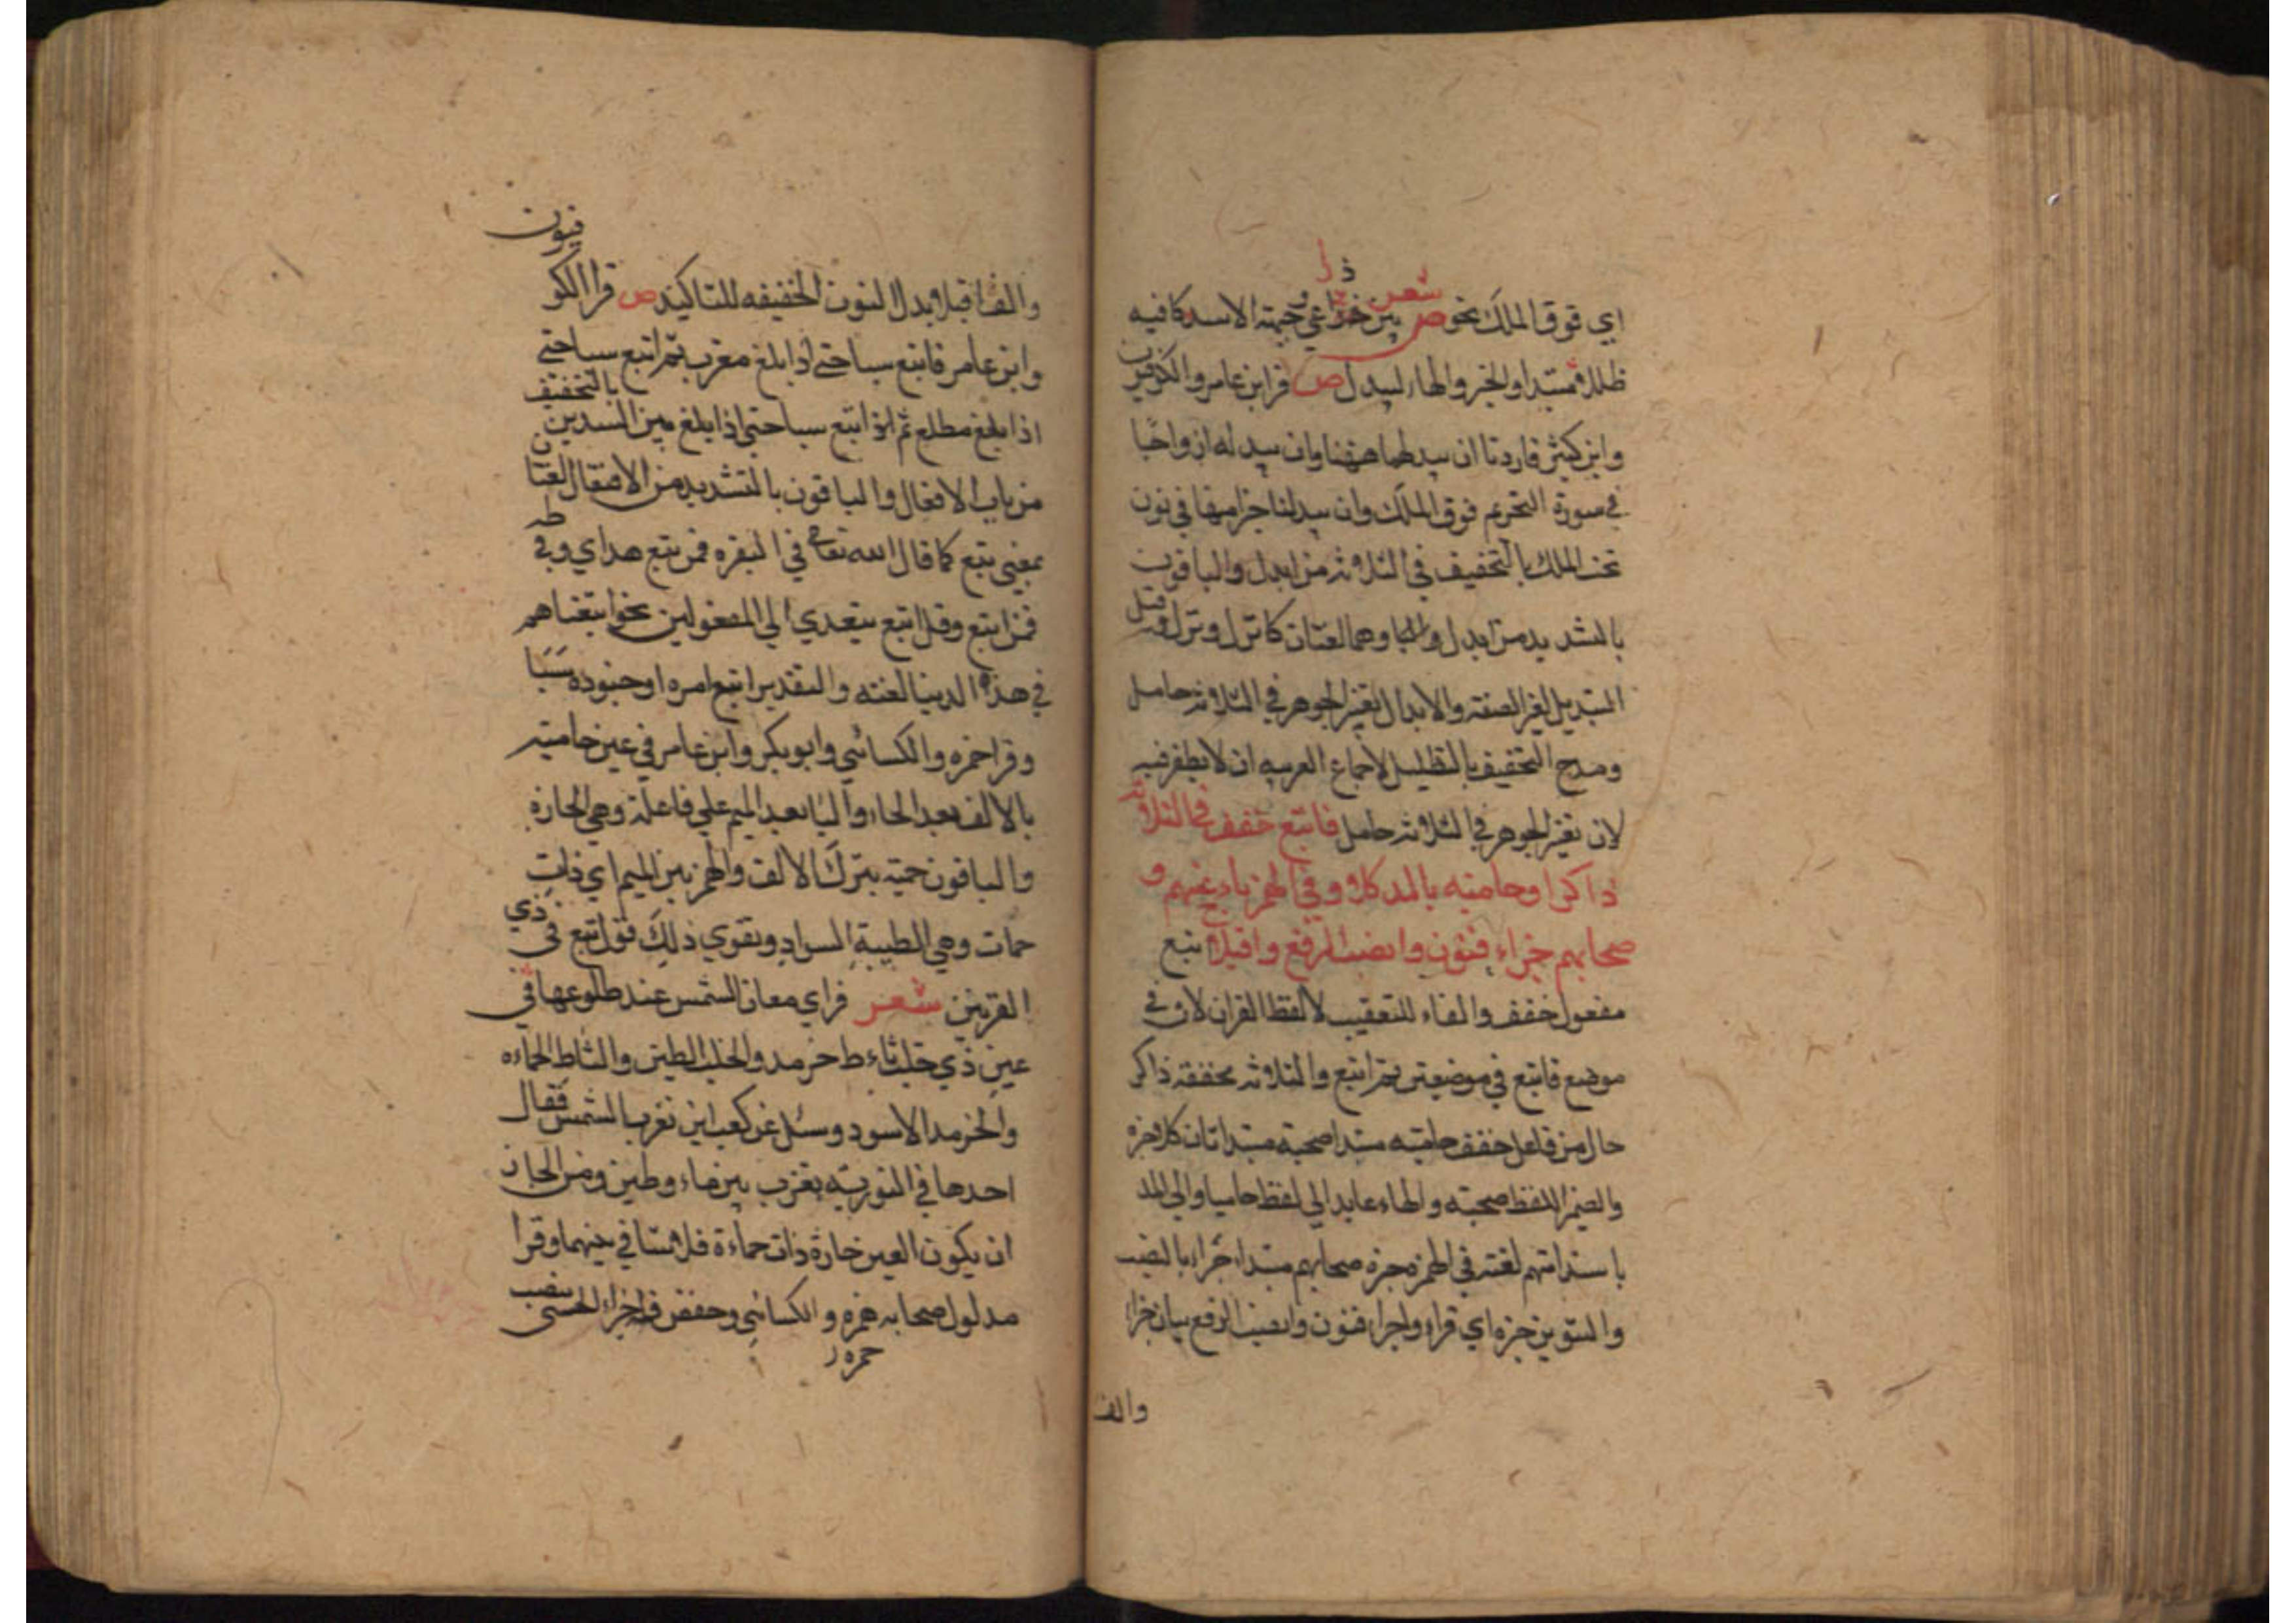 اي فوق الملك نحو ص شعر بين ذراعي وجبهة الاسد كافيه
ظلله مبتدا والخبر والهاء ليبدل ص قرا ابن عامر والكوفيون
وابن كثير فاردنا ان يبدلهما ههنا وان يبدله ازواجا
في سورة التحريم فوق الملك وان يبدلنا خيرا منها في نون
تحت الملك بالتخفيف في الثلاثه من ابدل والباقون
بالتشديد من بدل وهما لغتان كانزل ونزل وقيل
التبديل لغير الصفة والابدال لتغير الجوهر في الثلاثه حامل
ومدح التخفيف بالتظليل لاجماع العربيه ان لا يظفر فيه
لان تغير الجوهر في الثلاثه حامل فاتبع خفف في الثلاثة
ذاكرا وحاميه بالمد كلا وفي الهمز ياء عنهم و
صحابهم جزاء فنون وانصب الرفع واقبلا اتبع
مفعول خفف والفاء للتعقيب لا لفظ القران لان في
موضع فاتبع في موضعين ثم اتبع والثلاثه مخففة ذاكر
حال من فاعل خفف حاميه مبتدا صحبته مبتدا ثان كلا خبره
والضمير للفظ صحبته والهاء عايد الي لفظ حاميا والي المد
ياء عنهم لغته في الهمزه خبره صحابهم مبتدا جزاء بالنصب
والتنوين خبره اي قراوا جزاء فنون وانصب الرفع بيان جزاء
والف
والف اقبلا بدل النون الخفيفه للتاكيد ص قرا الكوفيون
وابن عامر فاتبع سببا حتي اذا بلغ مغرب ثم اتبع سببا حتي
اذا بلغ مطلع ثم اتبع سببا حتي اذا بلغ بين السدين بالتخفيف
من باب الافعال والباقون بالتشديد من الافتعال لغتان
بمعني تبع كما قال الله تعالي في البقره فمن تبع هداي وفي طه
فمن اتبع وقيل اتبع يتعدي الي المفعولين نحو اتبعناهم
في هذه الدنيا لعنه والتقدير اتبع امره او جنوده سببا
وقرا حمزه والكسائي وابو بكر وابن عامر في عين حاميه
بالالف بعد الحاء والياء بعد الميم علي فاعلة وهي الحارة
والباقون حمئه بترك الالف والهمز بين الميم اي ذات
حمات وهي الطيبة السواد ويقوي ذلك قول تبع في ذي
القرنين شعر فراي معان الشمس عند طلوعها في
عين ذي خلب ثاء ط حرمد والخلب الطين والثاط الحماءه
والخرمد الاسود وسئل عن كعب اين تغرب الشمس فقال
احدها في التوريته يغرب بين ماء وطين ومن الجائز
ان يكون العين حارة ذات حماءة فلا تنافي بينهما وقرا
مدلول صحابه حمزه والكسائي وحفص فله جزاء الحسني بنصب
حمزه